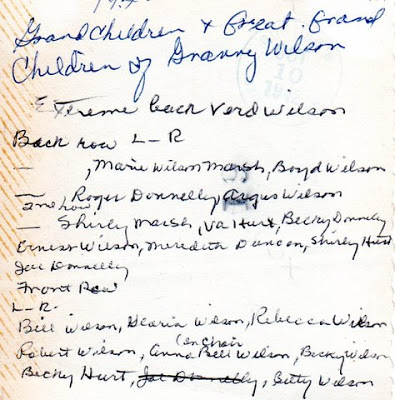 Grand Children & Great. Grand
Children of Granny Wilson
Extreme back Verd Wilson
Back row L-R
— , Marie Wilson Marsh, Boyd Wilson
— Roger Donnelly, Angus Wilson
2nd row
— Shirly Marsh, Va Hurt, Becky Donnelly
Ernest Wilson, Meredith Duncan, Shirley Hurt
Joe Donnelly
Front Row
L-R-
Bill Wilson, Gloria Wilson, Rebecca Wilson
on chair
Robert Wilson, Anna Bell Wilson, Becky Wilson
Becky Hurt, Joe Donnelly, Betty Wilson